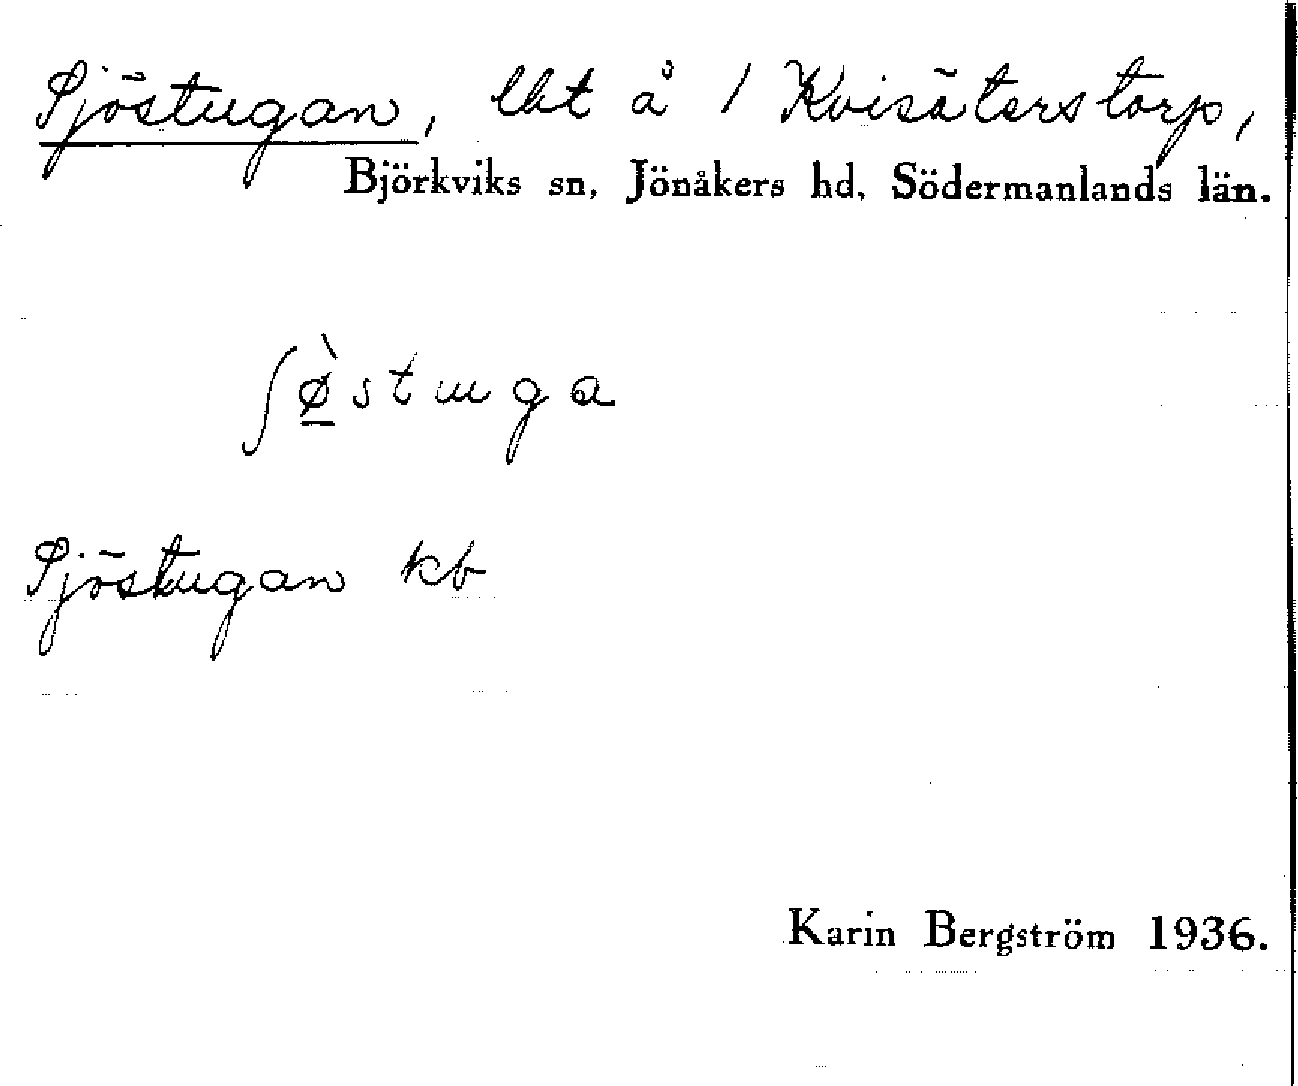 Sjöstugan, lht å 1 Kvisäterstorp,
Björkviks sn, Jönåkers hd, Södermanlands län.
ʃø̲̀stuga
Sjöstugan kb
Karin Bergström 1936.